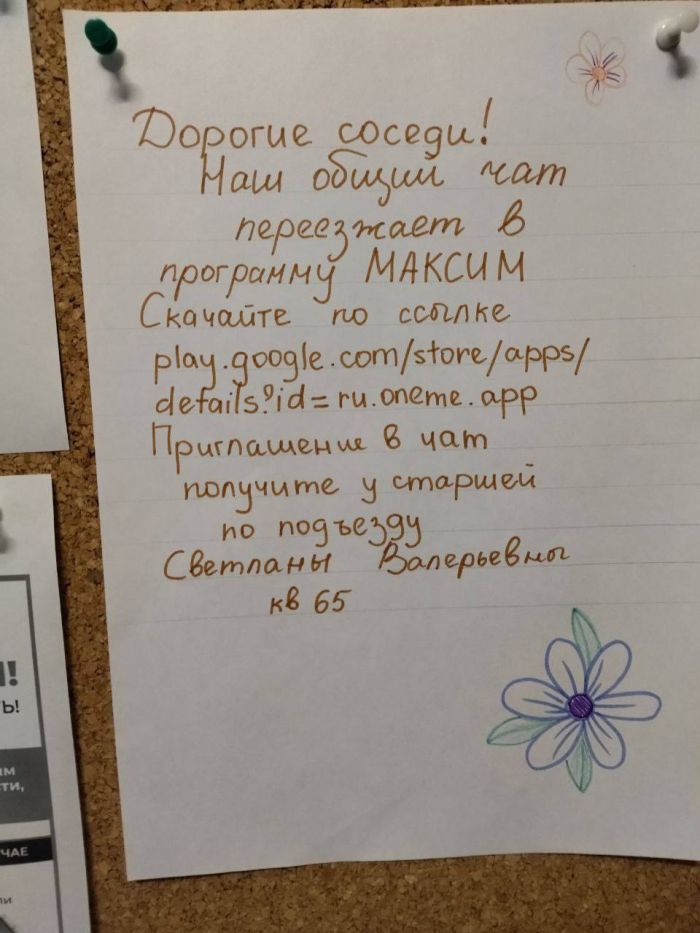 Дорогие соседи!
Наш общий чат
переезжает в
программу МАКСИМ
Скачайте по ссылке
play.google.com/store/apps/
details?id=ru.oneme.app
Приглашение в чат
получите у старшей
по подъезду
Светланы Валерьевны
кв 65
!
Ь!
ИМ
ТИ,
ЧАЕ